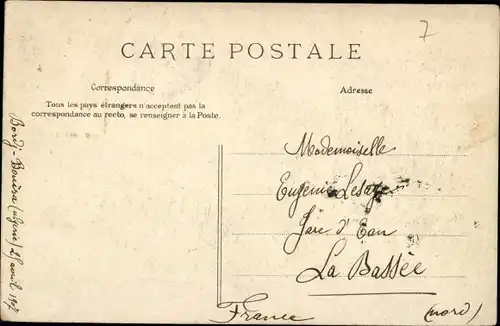 7
CARTE POSTALE
Correspondance
Tous les pays étrangers n'acceptent pas la
correspondance au recto, se renseigner à la Poste.
Adresse
Mademoiselle
Eugenie
Gare d'Eau
La Bassée
France (nord)
Bordj-Bouira (algerie) avril